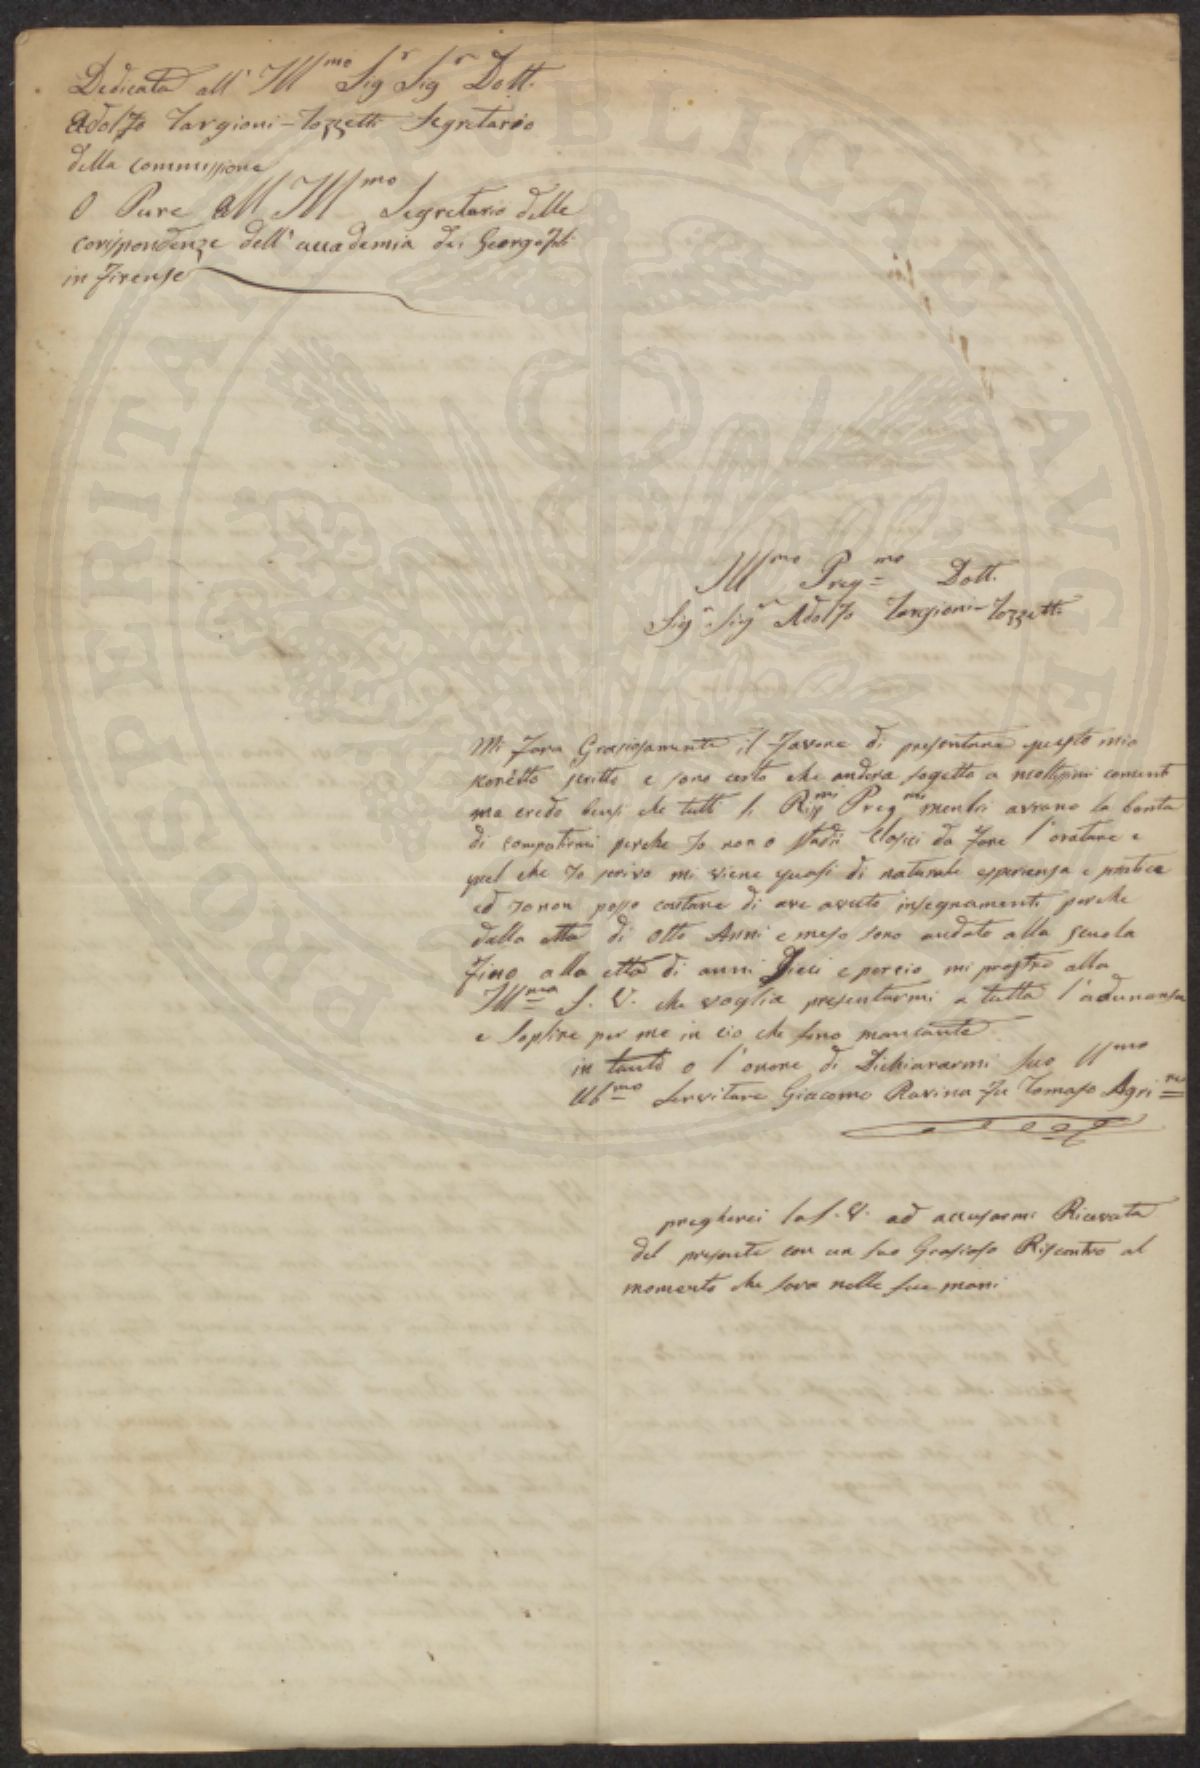 Dedicata all' Ill.mo Sig.r Sig.r Dott.
Adolfo Targioni-Tozzetti Segretario
della commissione
O Pure all Ill.mo Segretario delle
corispondenze dell' accademia dei Georgofili
in Firense
Ill.mo Preg.mo Dott.
Sig.r Sig.r Adolfo Targioni-Tozzetti
Mi fara Grasiosamente il favore di presentare questo mio
scritto e sono certo che andera sogetto a moltissimi comenti
ma credo bensi che tutti li Preg.mi menbri avrano la bonta
di compatirmi perche Io non o studii Clasici da fare l'oratore e
quel che Io scrivo mi viene quasi di naturale esperiensa e pratica
ed Io non posso contare di ave avuto insegnamenti perche
dalla etta di Otto Anni e meso sono andato alla scuola
fino alla etta di anni Dieci e percio mi prostro alla
Ill.ma S. V. che voglia presentarmi a tutta l'adunansa
e soplire per me in cio che sono mancante
in tanto o l'onore di Dichiararmi suo U.mo
Ub.mo Servitore Giacomo Ravina fu Tomaso Agri.re
pregherei la S. V. ad accusarmi Ricevuta
del presente con un suo Grasioso Riscontro al
momento che sara nelle sue mani
PROSPERITATI PUBLICAE AUGENDAE